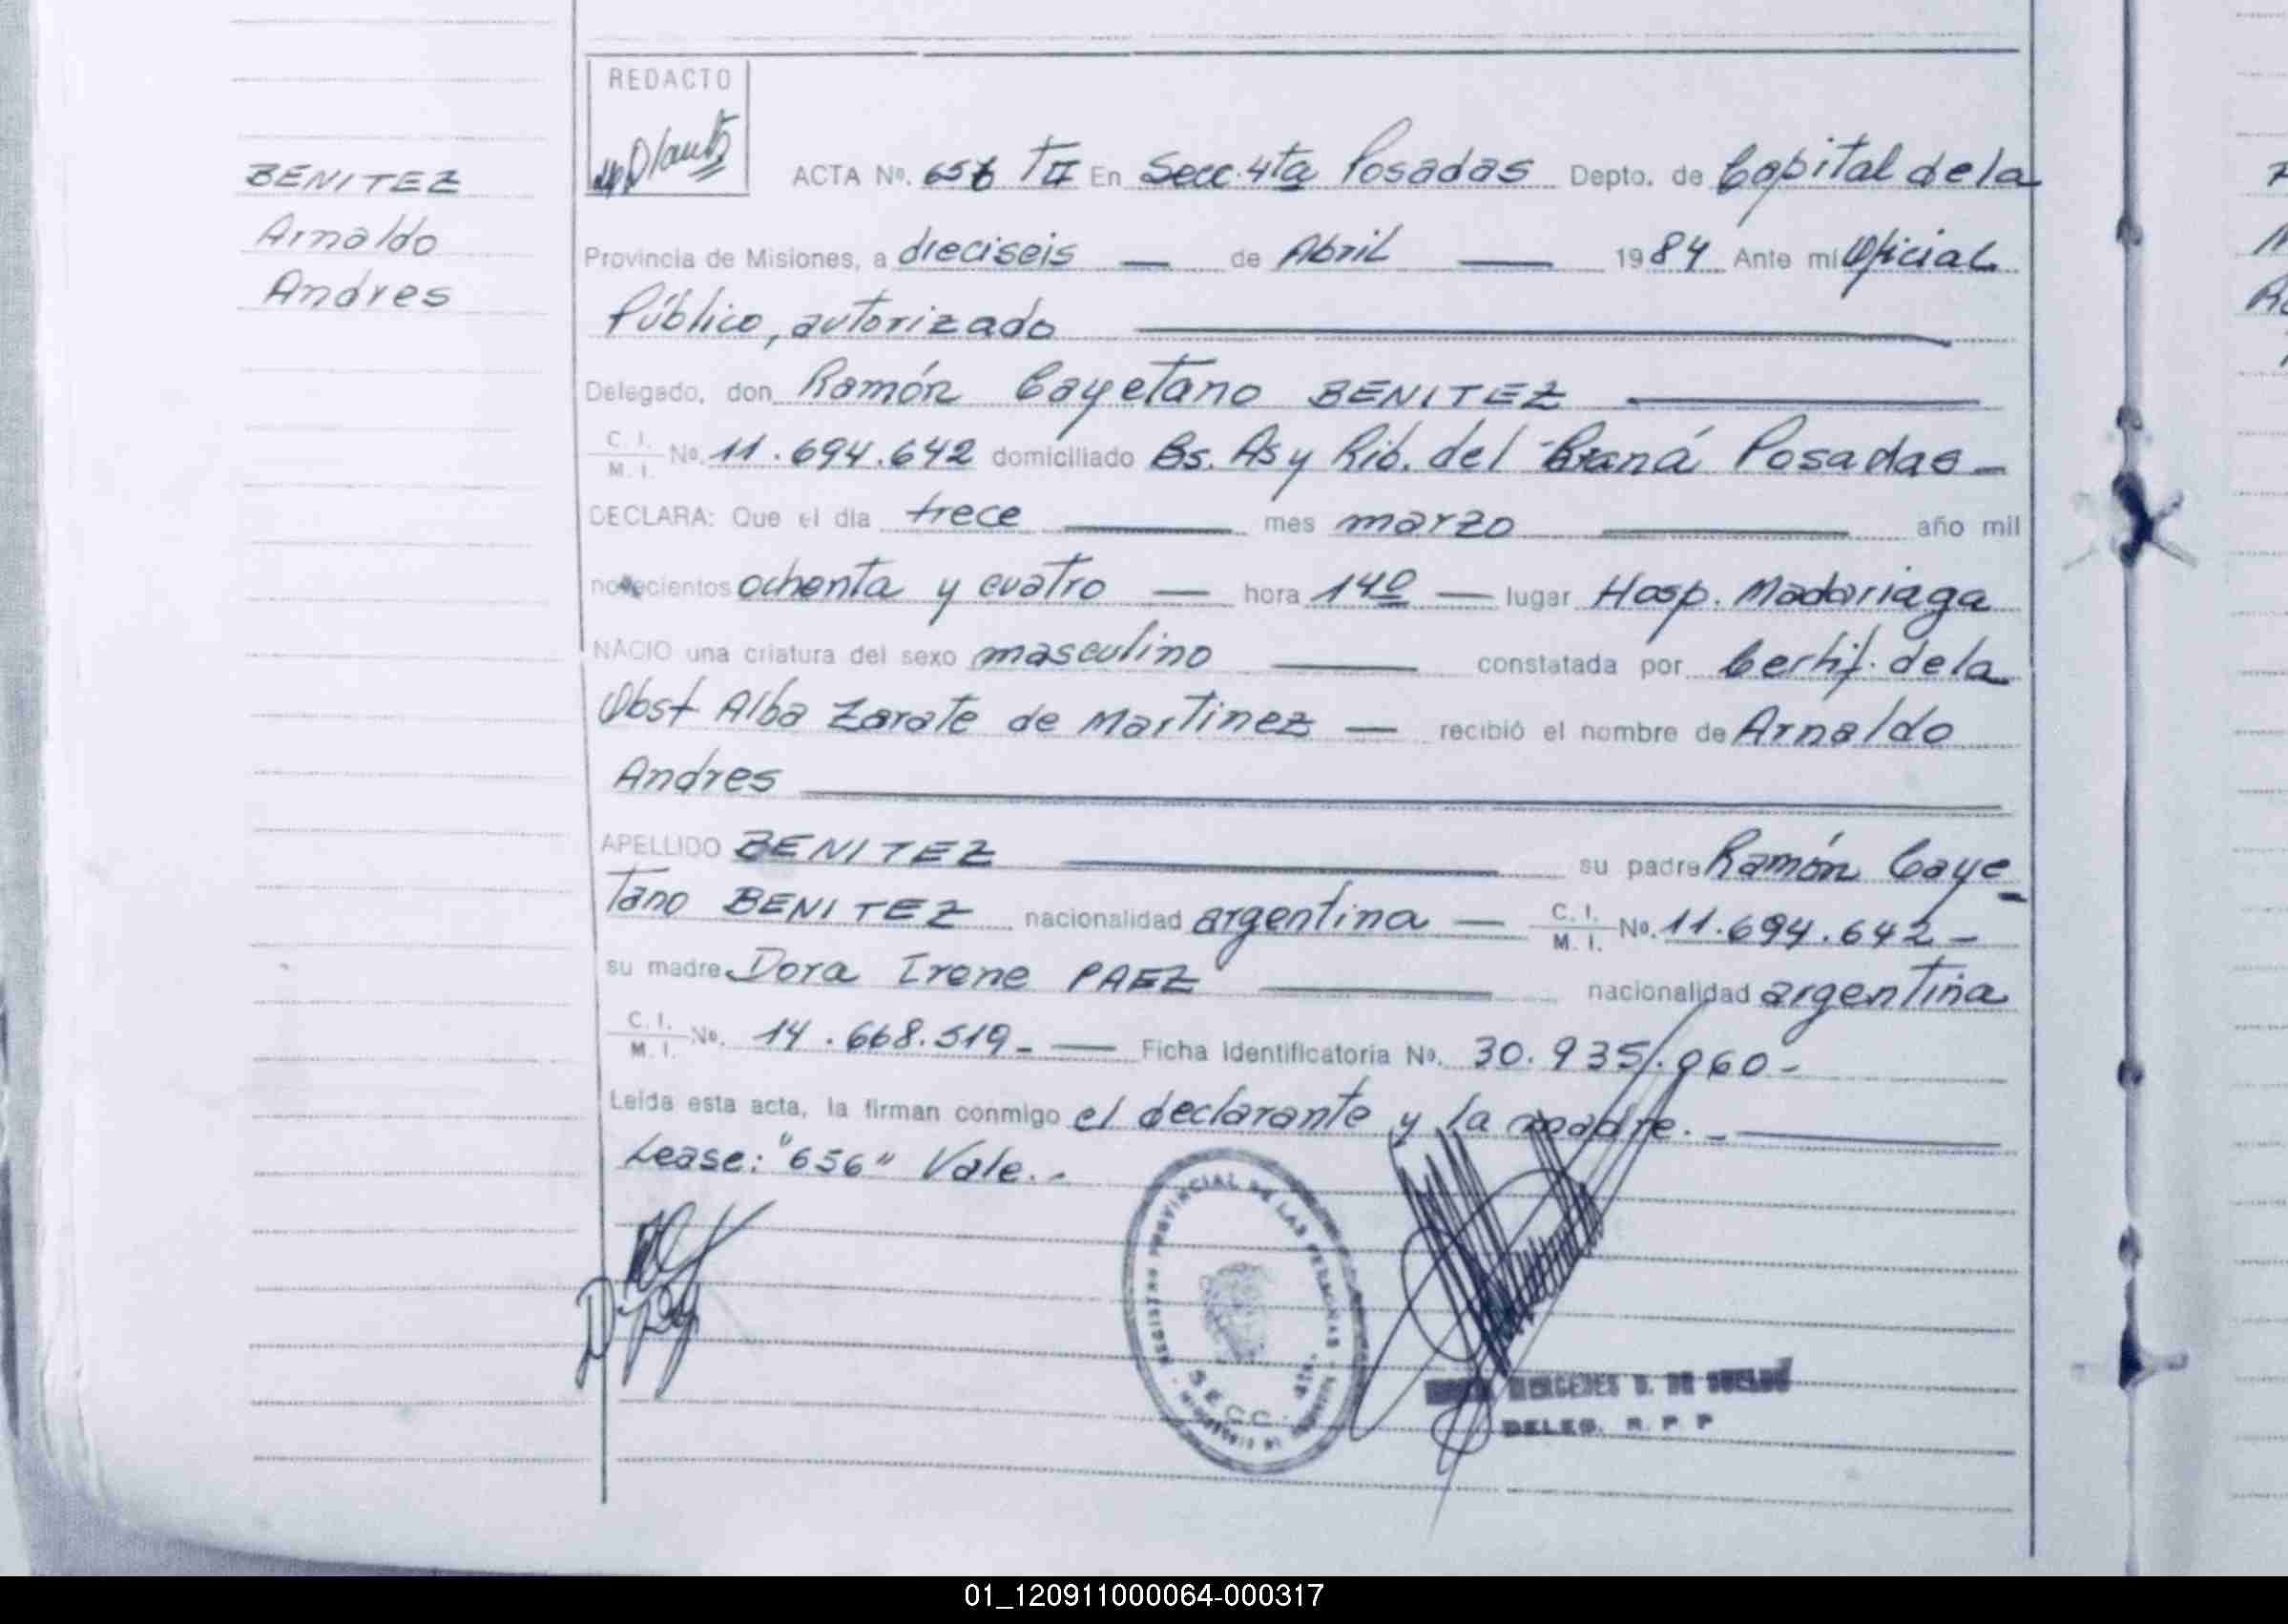 REDACTO
BENITEZ
Arnaldo
Andres
ACTA Nº. 656 TII En Secc. 4ta Posadas Depto. de Capital de la
Provincia de Misiones, a dieciseis — de Abril — 1984 Ante mi Oficial
Público, autorizado
Delegado, don Ramón Cayetano BENITEZ
C. I.
M. I. Nº. 11.694.642 domiciliado Bs. As y Rib. del Paraná Posadas -
DECLARA: Que el día trece — mes marzo — año mil
novecientos ochenta y cuatro — hora 14º — lugar Hosp. Madariaga
NACIO una criatura del sexo masculino — constatada por Certif. de la
Obst Alba Zarate de Martinez — recibió el nombre de Arnaldo
Andres
APELLIDO BENITEZ — su padre Ramón Caye-
tano BENITEZ nacionalidad argentina — C. I.
M. I. Nº. 11.694.642 -
su madre Dora Irene PAEZ — nacionalidad argentina
C. I.
M. I. Nº. 14.668.519 - — Ficha Identificatoria Nº. 30.935.060 -
Leída esta acta, la firman conmigo el declarante y la madre. -
Lease: "656" Vale. -
REGISTRO PROVINCIAL DE LAS PERSONAS
SECC. 4ta.
DE
DELEG. R. P. P
01_120911000064-000317